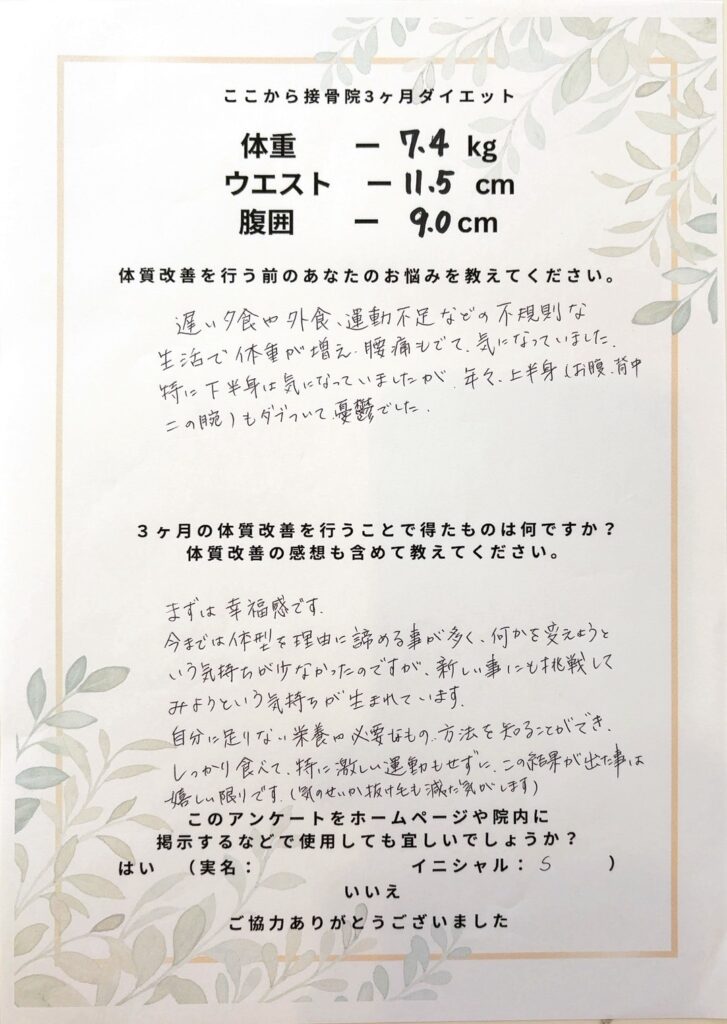 ここから接骨院3ヶ月ダイエット
体重 ー 7.4 kg
ウエスト ー 11.5 cm
腹囲 ー 9.0 cm
体質改善を行う前のあなたのお悩みを教えてください。
遅い夕食や外食、運動不足などの不規則な
生活で体重が増え、腰痛もでて、気になっていました。
特に下半身は気になっていましたが、年々、上半身(お腹、背中
二の腕)もダブついて、憂鬱でした。
3ヶ月の体質改善を行うことで得たものは何ですか?
体質改善の感想も含めて教えてください。
まずは幸福感です。
今までは体型を理由に諦める事が多く、何かを変えようと
いう気持ちが少なかったのですが、新しい事にも挑戦して
みようという気持ちが生まれています。
自分に足りない栄養や必要なもの、方法を知ることができ、
しっかり食べて、特に激しい運動もせずに、この結果が出た事は
嬉しい限りです。(気のせいか抜け毛も減った気がします)
このアンケートをホームページや院内に
掲示するなどで使用しても宜しいでしょうか?
はい (実名: イニシャル: S )
いいえ
ご協力ありがとうございました